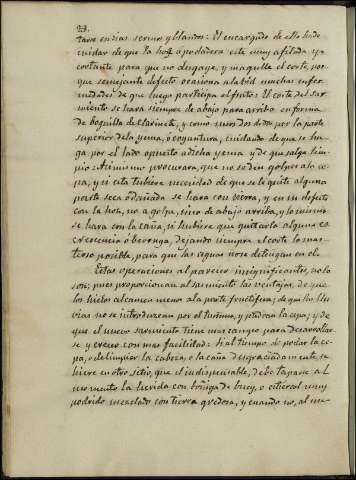 23.
tavo en dias serenos y blandos: El encargado de ello ha de
cuidar de que la hoz, ó podadera esté muy afilada y
cortante para que no desgage, y magulle el corte, por
que semejante defecto ocasiona a la bid muchas enfer
medades de que luego participa el fruto: El corte del sar
miento se hará siempre de abajo para arriba en forma
de boquilla de clarinete, y como unos dos dedos por la parte
superior de la yema, ó coyuntura, cuidando de que se ha
ga por el lado opuesto a dicha yema y de que salga lim
pio: Asimismo procurará, que no se den golpes a la ce
pa, y si esta tubiere necesidad de que se le quite alguna
parte seca ó dañada se hará con sierra, y en su defecto
con la hoz, no a golpe, sino de abajo arriba, y lo mismo
se hará con la caña, si hubiere que quitarle alguna es
crecencia ó berruga, dejando siempre el corte lo mas
terso posible, para que las aguas no se detengan en el.
Estas operaciones al parecer insignificantes, no lo
son; pues proporcionan al sarmiento las ventajas, de que
los hielos alcancen menos a la parte fructifera; de que las llu
vias no se introduzcan por el tuetano, y pudran la cepa; y de
que el nuevo sarmiento tiene mas campo para desarrollar
se y crece con mas facilidad: Si al tiempo de podar la ce
pa, ó de limpiar la cabeza, o la caña desgraciadamente, se
hiere en otro sitio, que el indispensable, debe taparse al
momento la herida con boñiga de buey, o estiercol muy
podrido mezclado con tierra gredosa, y cuando no, al me